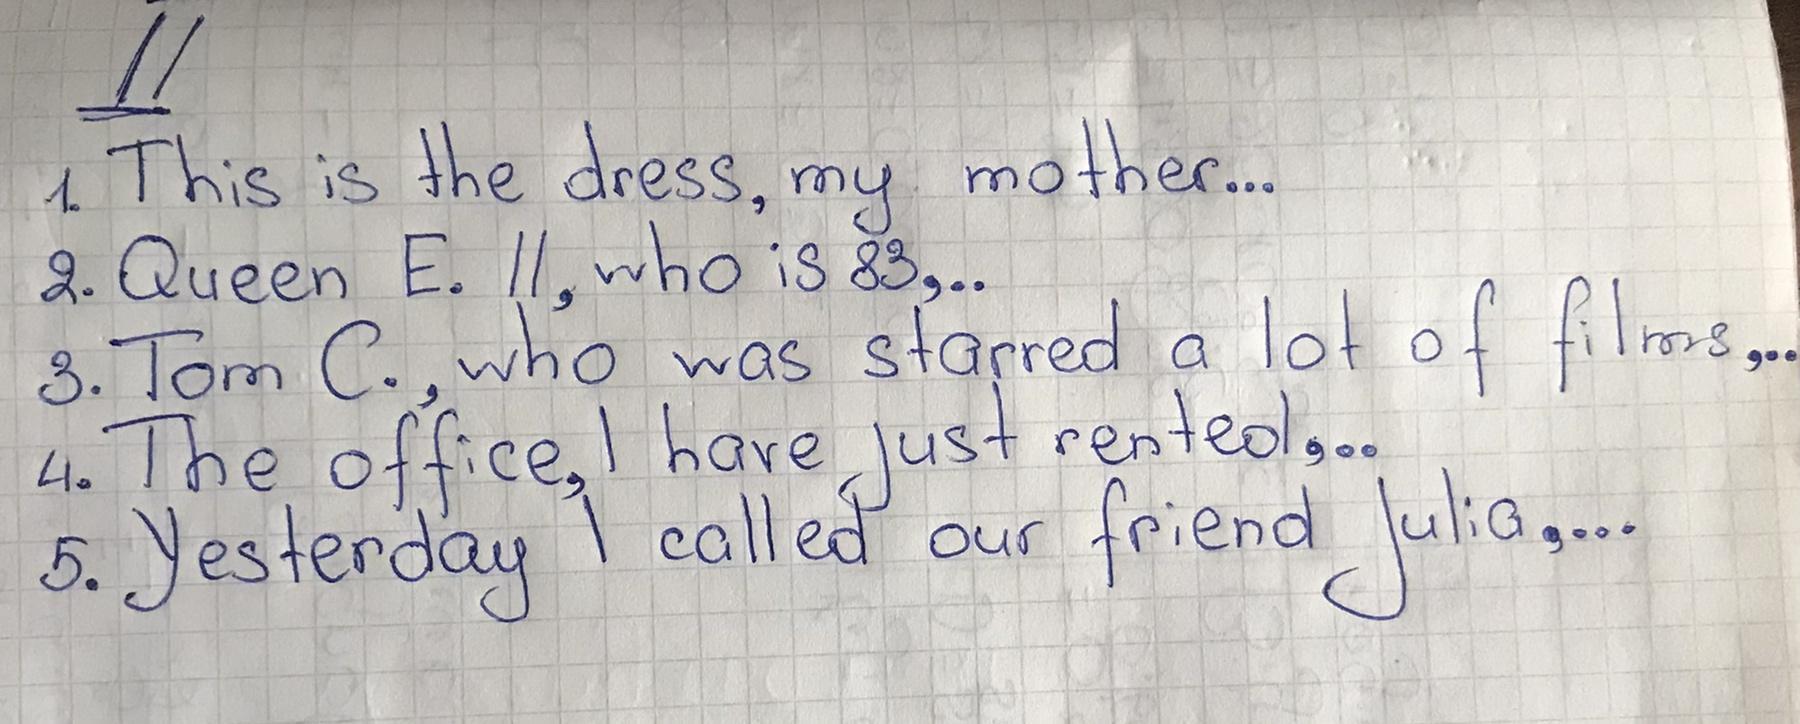 II
1. This is the dress, my mother...
2. Queen E. II, who is 83,...
3. Tom C., who was starred a lot of films,...
4. The office, I have just rented,...
5. Yesterday I called our friend Julia,....